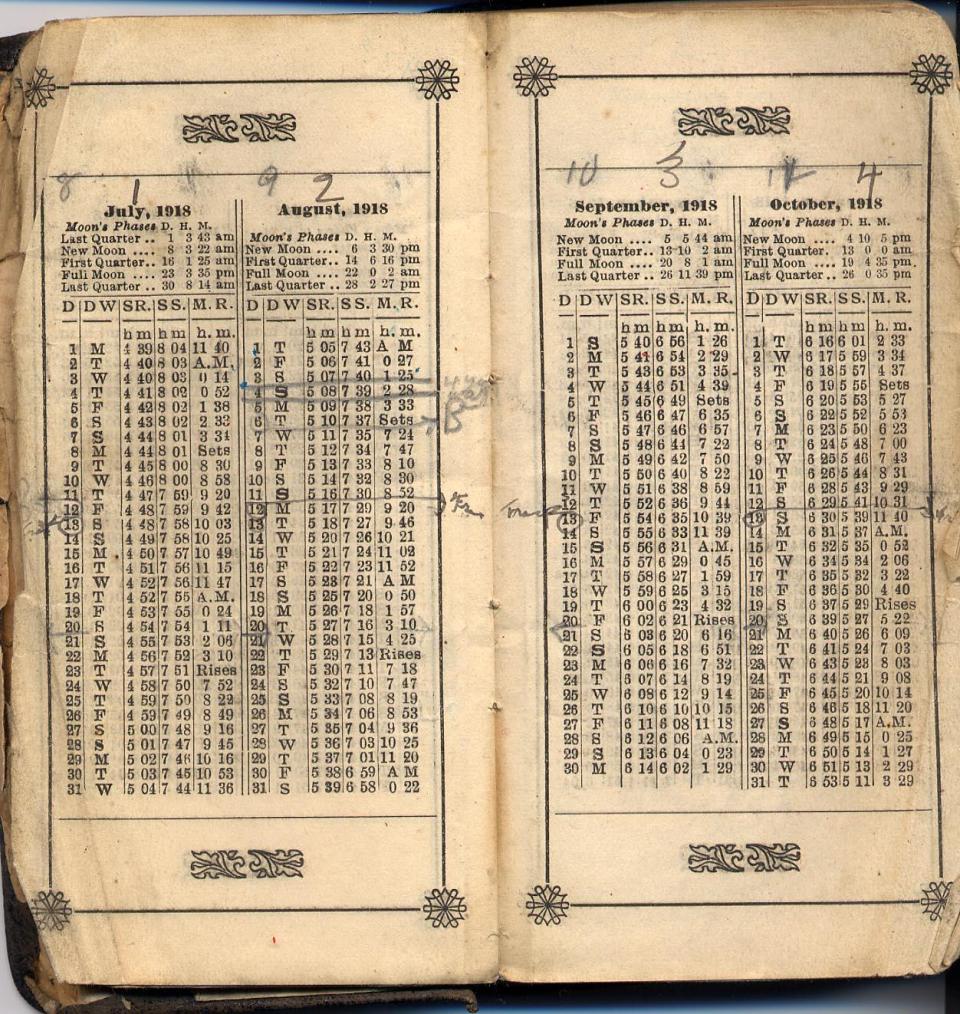 8 1
July, 1918
Moon's Phases D. H. M.
Last Quarter .. 1 3 43 am
New Moon .... 8 3 22 am
First Quarter.. 16 1 25 am
Full Moon .... 23 3 35 pm
Last Quarter .. 30 8 14 am
D D W SR. S S. M. R.
h m h m h. m.
1 M 4 39 8 04 11 40
2 T 4 40 8 03 A.M.
3 W 4 40 8 03 0 14
4 T 4 41 8 02 0 52
5 F 4 42 8 02 1 38
6 S 4 43 8 02 2 33
7 S 4 44 8 01 3 34
8 M 4 44 8 01 Sets
9 T 4 45 8 00 8 30
10 W 4 46 8 00 8 58
11 T 4 47 7 59 9 20
12 F 4 48 7 59 9 42
13 S 4 48 7 58 10 03
14 S 4 49 7 58 10 25
15 M 4 50 7 57 10 49
16 T 4 51 7 56 11 15
17 W 4 52 7 56 11 47
18 T 4 52 7 55 A.M.
19 F 4 53 7 55 0 24
20 S 4 54 7 54 1 11
21 S 4 55 7 53 2 06
22 M 4 56 7 52 3 10
23 T 4 57 7 51 Rises
24 W 4 58 7 50 7 52
25 T 4 59 7 50 8 22
26 F 4 59 7 49 8 49
27 S 5 00 7 48 9 16
28 S 5 01 7 47 9 45
29 M 5 02 7 46 10 16
30 T 5 03 7 45 10 53
31 W 5 04 7 44 11 36
9 2
August, 1918
Moon's Phases D. H. M.
New Moon .... 6 3 30 pm
First Quarter.. 14 6 16 pm
Full Moon .... 22 0 2 am
Last Quarter .. 28 2 27 pm
D D W SR. S S. M. R.
h m h m h. m.
1 T 5 05 7 43 A M
2 F 5 06 7 41 0 27
3 S 5 07 7 40 1 25
4 S 5 08 7 39 2 28
5 M 5 09 7 38 3 33
6 T 5 10 7 37 Sets
7 W 5 11 7 35 7 24
8 T 5 12 7 34 7 47
9 F 5 13 7 33 8 10
10 S 5 14 7 32 8 30
11 S 5 16 7 30 8 52
12 M 5 17 7 29 9 20
13 T 5 18 7 27 9 46
14 W 5 20 7 26 10 21
15 T 5 21 7 24 11 02
16 F 5 22 7 23 11 52
17 S 5 23 7 21 A M
18 S 5 25 7 20 0 50
19 M 5 26 7 18 1 57
20 T 5 27 7 16 3 10
21 W 5 28 7 15 4 25
22 T 5 29 7 13 Rises
23 F 5 30 7 11 7 18
24 S 5 32 7 10 7 47
25 S 5 33 7 08 8 19
26 M 5 34 7 06 8 53
27 T 5 35 7 04 9 36
28 W 5 36 7 03 10 25
29 T 5 37 7 01 11 20
30 F 5 38 6 59 A M
31 S 5 39 6 58 0 22
10 3
September, 1918
Moon's Phases D. H. M.
New Moon .... 5 5 44 am
First Quarter.. 13 10 2 am
Full Moon .... 20 8 1 am
Last Quarter .. 26 11 39 pm
D D W SR. S S. M. R.
h m h m h. m.
1 S 5 40 6 56 1 26
2 M 5 41 6 54 2 29
3 T 5 43 6 53 3 35
4 W 5 44 6 51 4 39
5 T 5 45 6 49 Sets
6 F 5 46 6 47 6 35
7 S 5 47 6 46 6 57
8 S 5 48 6 44 7 22
9 M 5 49 6 42 7 50
10 T 5 50 6 40 8 22
11 W 5 51 6 38 8 59
12 T 5 52 6 36 9 44
13 F 5 54 6 35 10 39
14 S 5 55 6 33 11 39
15 S 5 56 6 31 A.M.
16 M 5 57 6 29 0 45
17 T 5 58 6 27 1 59
18 W 5 59 6 25 3 15
19 T 6 00 6 23 4 32
20 F 6 02 6 21 Rises
21 S 6 03 6 20 6 16
22 S 6 05 6 18 6 51
23 M 6 06 6 16 7 32
24 T 6 07 6 14 8 19
25 W 6 08 6 12 9 14
26 T 6 10 6 10 10 15
27 F 6 11 6 08 11 18
28 S 6 12 6 06 A.M.
29 S 6 13 6 04 0 23
30 M 6 14 6 02 1 29
4
October, 1918
Moon's Phases D. H. M.
New Moon .... 4 10 5 pm
First Quarter. 13 0 0 am
Full Moon .... 19 4 35 pm.
Last Quarter .. 26 0 35 pm
D D W SR. S S. M. R.
h m h m h. m.
1 T 6 16 6 01 2 33
2 W 6 17 5 59 3 34
3 T 6 18 5 57 4 37
4 F 6 19 5 55 Sets
5 S 6 20 5 53 5 27
6 S 6 22 5 52 5 53
7 M 6 23 5 50 6 23
8 T 6 24 5 48 7 00
9 W 6 25 5 46 7 43
10 T 6 26 5 44 8 31
11 F 6 28 5 43 9 29
12 S 6 29 5 41 10 31
13 S 6 30 5 39 11 40
14 M 6 31 5 37 A.M.
15 T 6 32 5 35 0 52
16 W 6 34 5 34 2 06
17 T 6 35 5 32 3 22
18 F 6 36 5 30 4 40
19 S 6 37 5 29 Rises
20 S 6 39 5 27 5 22
21 M 6 40 5 26 6 09
22 T 6 41 5 24 7 03
23 W 6 43 5 23 8 03
24 T 6 44 5 21 9 08
25 F 6 45 5 20 10 14
26 S 6 46 5 18 11 20
27 S 6 48 5 17 A.M.
28 M 6 49 5 15 0 25
29 T 6 50 5 14 1 27
30 W 6 51 5 13 2 29
31 T 6 53 5 11 3 29